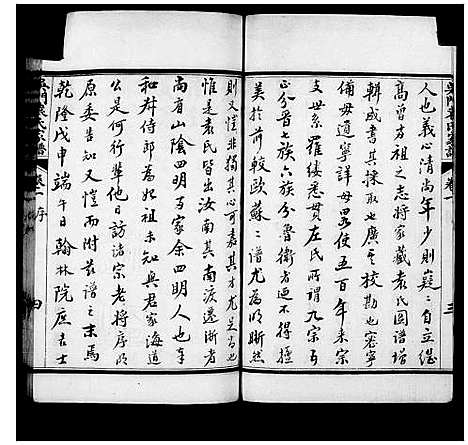 吳門袁氏家譜
三
人也義心清尚年少則嶷嶷自立纘
高曾方祖之志將家藏袁氏圖譜增
輯成書其採取也廣其校勘也密寧
備毋遺寧詳毋略使五百年來宗
支世系羅縷悉貫左氏所謂九宗五
正分晉七族六族分魯衛者迺不得擅
美於前較歐蘇二譜尤為明晰然
則又豈非獨其心可嘉其才尤足尚也
惟是袁氏皆出汝南其南渡遷浙者
尚有山陰四明多家余四明人也奉
和府侍郎為始祖未知與君家海道
公是何行輩他日訪諸宗老將序明
原委告知又豈而附茲譜之末焉
乾隆戊申端午日翰林院庶吉士
吳門袁氏家譜
卷一
序
四